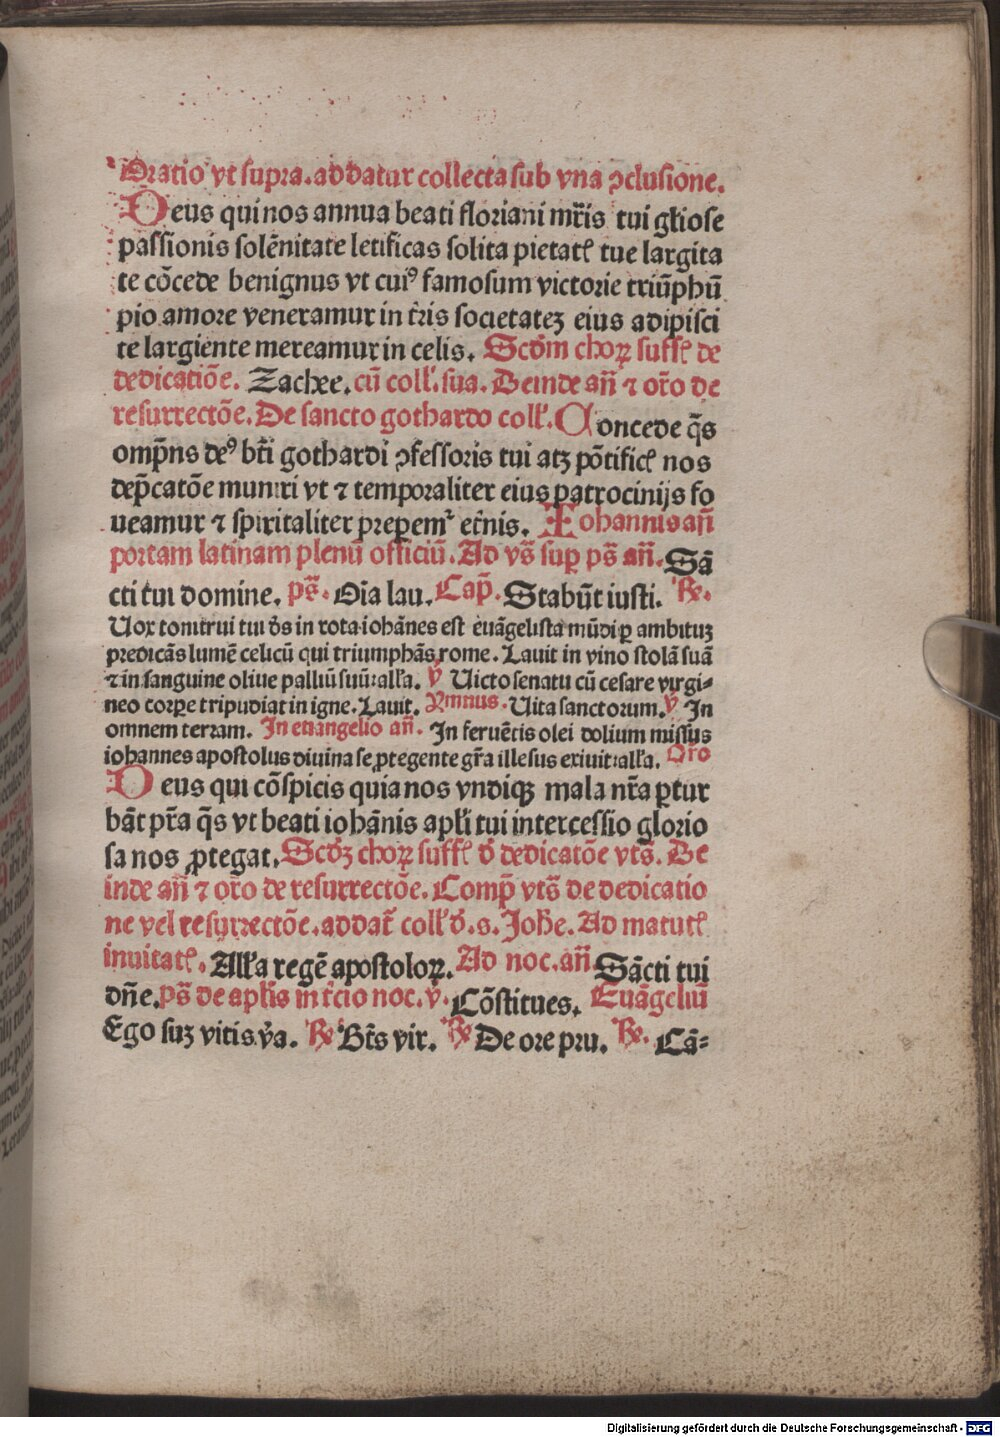 Oratio vt supra. addatur collecta sub vna ꝯclusione.
Deus qui nos annua beati floriani mr̄is tui gl̄iose
passionis solēnitate letificas solita pietatꝭ tue largita
te cōcede benignus vt cuiꝰ famosum victorie triūphū
pio amore veneramur in tr̄is societateꝫ eius adipisci
te largiente mereamur in celis. Scd̄m choꝝ suffꝭ de
dedicatiōe. Zachee. cū coll̄. sua. Deinde an̄ ⁊ or̄o de
resurrectōe. De sancto gothardo coll̄. Concede q̄s
omp̄ns deꝰ bt̄i gothardi ꝯfessoris tui atꝫ pōtificꝭ nos
dep̄catōe muniri vt ⁊ temporaliter eius patrocinijs fo
ueamur ⁊ spiritaliter preꝑemᷣ et̄nis. Iohannis an̄
portam latinam plenū officiū. Ad vs̄ suꝑ ps̄ an̄. Sā
cti tui domine. ps̄. Oīa lau. Cap̄. Stabūt iusti. ℞.
Uox tonitrui tui ds̄ in rota iohānes est euāgelista mūdi ꝑ ambituꝫ
predicās lumē celicū qui triumphās rome. Lauit in vino stolā suā
⁊ in sanguine oliue palliū suū alľa. ℣ Uicto senatu cū cesare virgi⸗
neo corpe tripudiat in igne. Lauit. Ymnus. Uita sanctorum. ℣ In
omnem terram. In euangelio an̄. In feruētis olei dolium missus
iohannes apostolus diuina se ꝓtegente gr̄a illesus exiuit alľa. Oro
Deus qui cōspicis quia nos vndiqꝫ mala nr̄a ꝑtur
bāt pr̄a q̄s vt beati iohānis apl̄i tui intercessio glorio
sa nos ꝓtegat. Scd̄ꝫ choꝝ suffꝭ d̄ dedicatōe vts̄. De
inde an̄ ⁊ or̄o de resurrectōe. Comp̄ vts̄ de dedicatio
ne vel resurrectōe. addat̄ coll̄ d̄. s. Joh̄e. Ad matutꝭ
inuitatꝭ. Alľa regē apostoloꝝ. Ad noc. an̄ Sācti tui
dn̄e. ps̄ de apl̄is in tr̄cio noc. ℣. Cōstitues. Euāgeliū
Ego suꝫ vitis v̄a. ℞ Bt̄s vir. ℞ De ore pru. ℞. Cā⸗
Digitalisierung gefördert durch die Deutsche Forschungsgemeinschaft - DFG